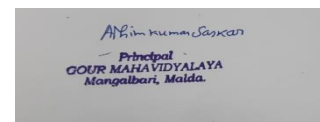 Ashim Kumar Sarkar
Principal
GOUR MAHAVIDYALAYA
Mangalbari, Malda.